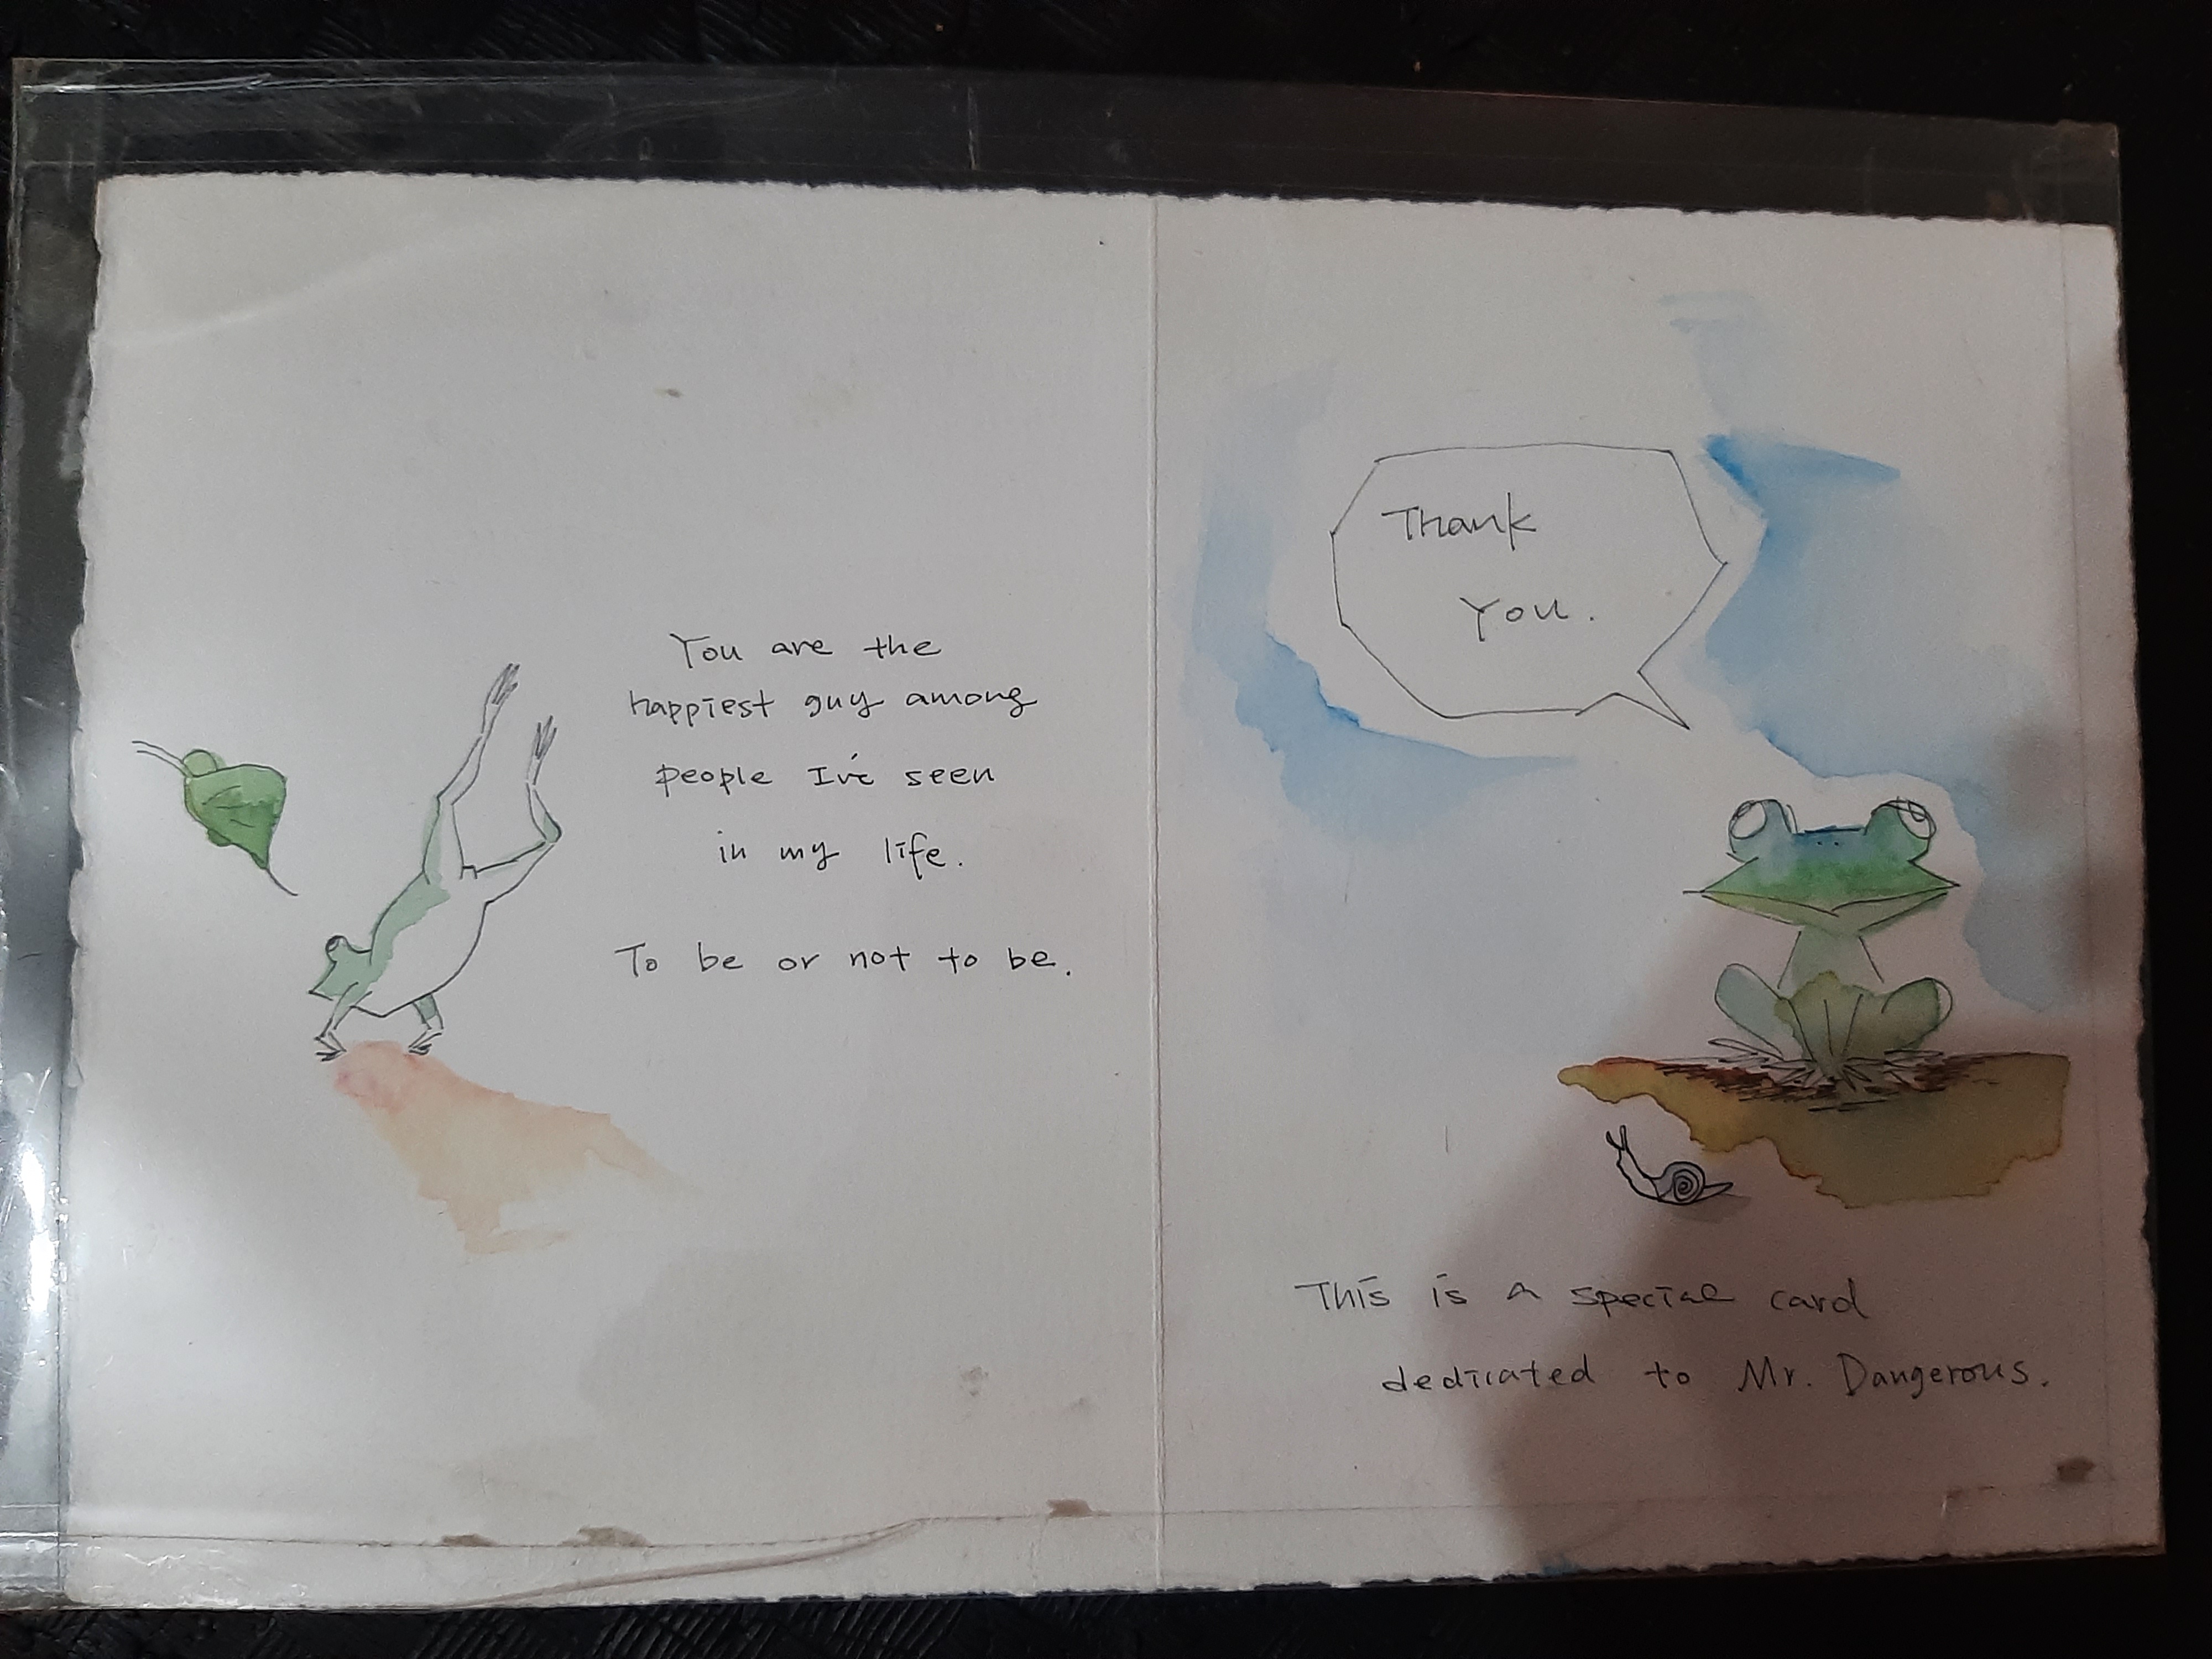 You are the
happiest guy among
people I've seen
in my life.
To be or not to be.
Thank
You.
This is a special card
dedicated to Mr. Dangerous.